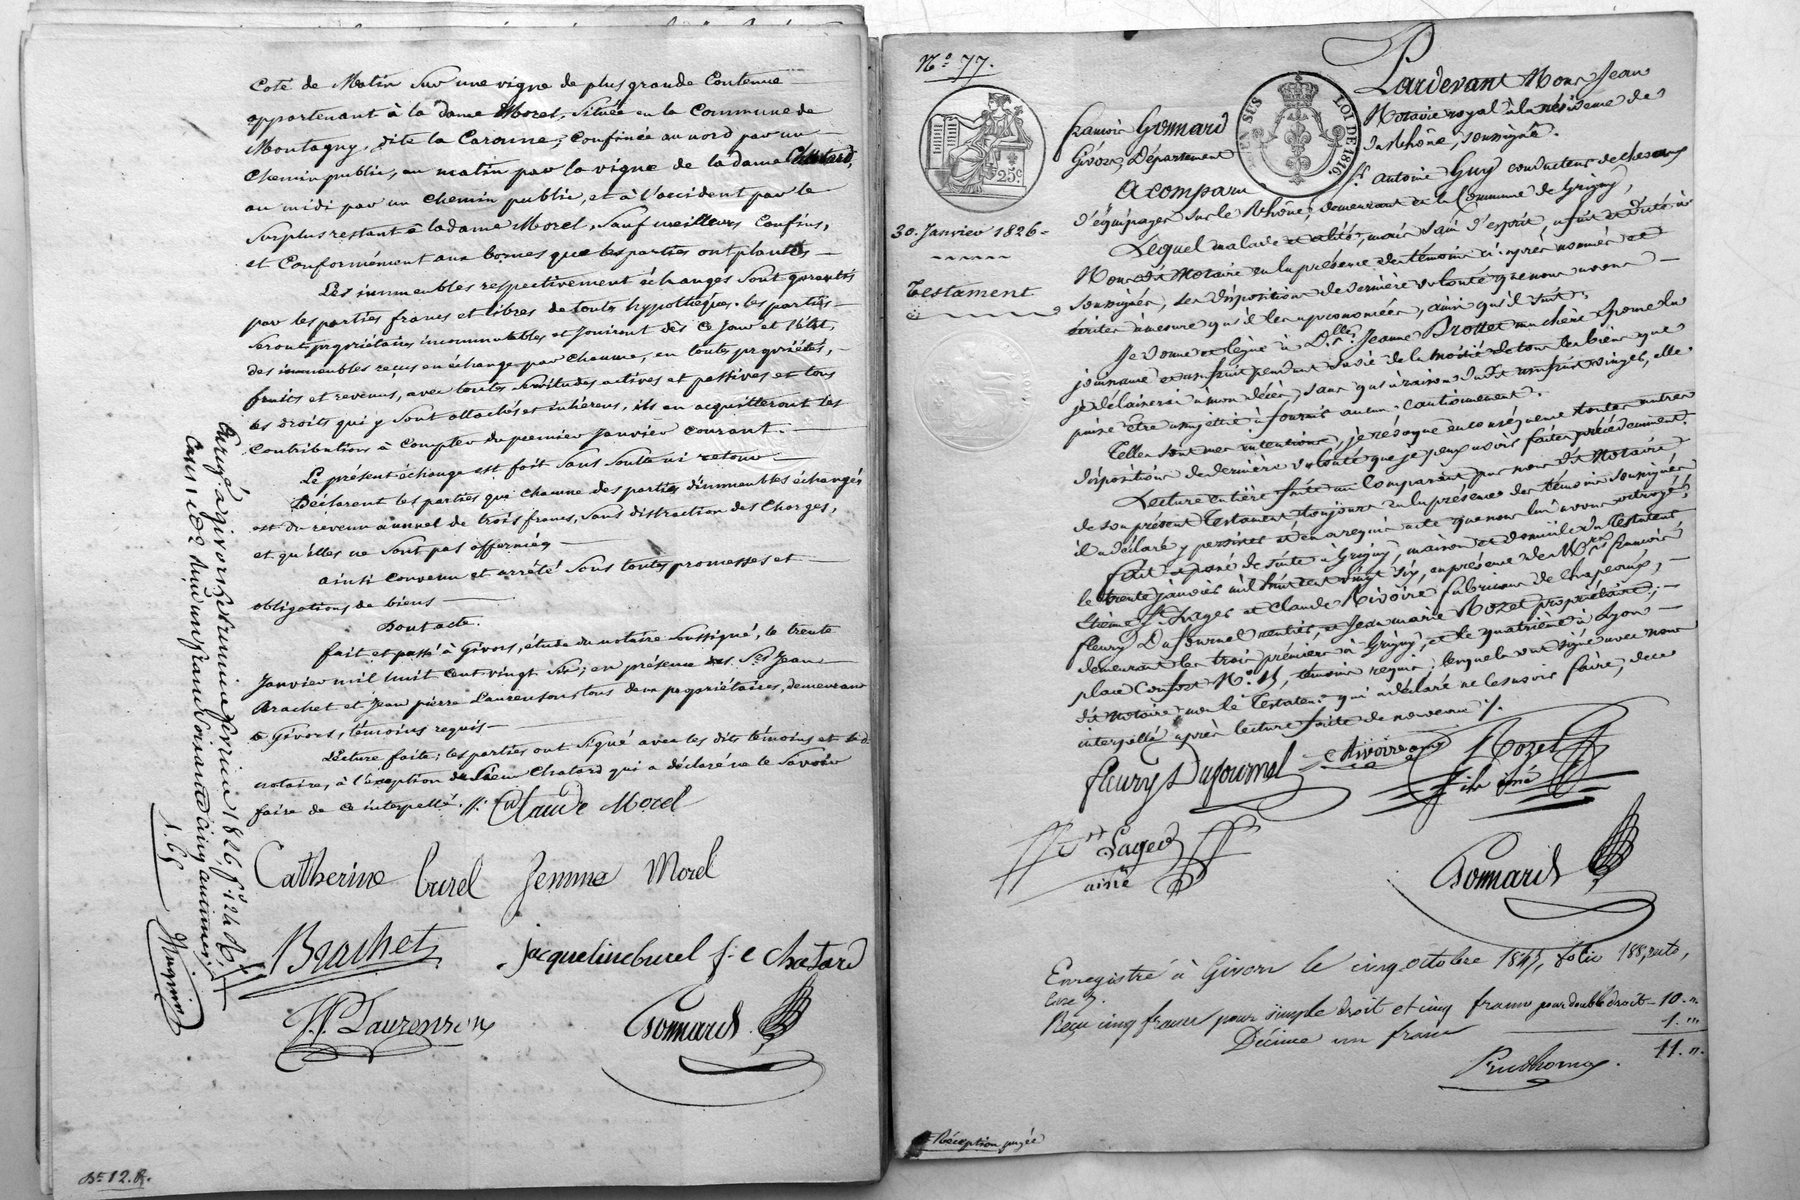 Coté de Matin sur une vigne de plus grande Contenue
appartenant à la dame Morel, située en la Commune de
Montagny, dite la Caronne; Confinée au nord par un
Chemin public, au matin par la vigne de la dame Chatard,
au midi par un Chemin public, et à l'occident par le
Surplus restant à la dame Morel, sauf meilleurs Confins,
et Conformément aux bornes que les parties ont plantées
Les immeubles respectivement échangés sont garantis
par les parties francs et libres de toute hypothèque. les parties
seront propriétaires incommutables et Jouiront dès ce Jour
des immeubles reçus en échange par chacune, en toutes propriétés,
fruits et revenus, avec toutes Servitudes actives et passives et tous
les droits qui y sont attachés et inhérens, ils en acquitteront les
Contributions à Compter du premier Janvier courant.
Le présent échange est fait sans soulte ni retour
Déclarent les parties que chacune des parties d'immeubles échangés
est du revenu annuel de trois francs, sans distraction des Charges,
et qu'elles ne sont pas affermées
ainsi convenu et arrêté sous toutes promesses et
obligations de biens
Dont acte.
fait et passé à Givors, étude du notaire soussigné, le trente
Janvier mil huit cent vingt six; en présence des Srs Jean
Brachet et Jean pierre Laurenson tous deux propriétaires, demeurant
à Givors, témoins requis
Lecture faite; les parties ont signé avec les dits témoins et le d.
notaire, à l'exception du Sieur Chatard qui a déclaré ne le Savoir
faire de ce interpellé.
Claude Morel
Catherine burel femme Morel
Brachet
jacqueline burel f.e chatard
J.P. Laurenson
Gonnard
1.65
No. 12. R.
No. 77.
25c
EN SUS
LOI DE 1816.
30. Janvier 1826
Testament
Pardevant Nous Jean
françois Gonnard
Notaire royal à la résidence de
Givors, Département
du Rhône, soussigné.
A comparu
Sr. antoine Guy conducteur de chevaux
d'équipages sur le Rhône, demeurant en la Commune de Grigny,
Lequel malade et alité, mais sain d'esprit, a fait et dicté à
Nous dit Notaire en la présence des témoins ci-après nommés et
soussignés, ses dispositions de dernière volonté que nous avons
écrites à mesure qu'il les a prononcées, ainsi qu'il suit:
Je donne et lègue à Dlle. Jeanne Brottet ma chère Epouse la
jouissance et usufruit pendant sa vie de la moitié de tous les biens que
je délaisserai à mon décès, sans qu'à raison du dit usufruit elle
puisse être assujettie à fournir aucun cautionnement.
Telles sont mes intentions, je révoque en conséquence toutes autres
dispositions de dernière volonté que je peux avoir faites précédemment.
Lecture entière faite au Comparant par nous dit Notaire
de son présent Testament toujours en la présence des témoins soussignés
il a déclaré y persister et en a requis acte que nous lui avons octroyé;
Fait et passé de suite à Grigny, maison et domicile du Testateur
le trente janvier mil huit cent vingt six, en présence de Mrs françois
Etienne Sages et Claude Rivoire fabricans de chapeaux,
fleury Dufournel rentier, et Jean marie Rozet propriétaire,
demeurant les trois premiers à Grigny, et le quatrième à Lyon
place Confort No. 11, témoins requis; lesquels ont signé avec nous
dit notaire non le Testateur qui a déclaré ne le savoir faire, de ce
interpellé après lecture faite de nouveau
fleury Dufournel
C Rivoire
Rozet
fils ainé
ainé
Gonnard
Enregistré à Givors le cinq octobre 1845, folio 188, recto,
Case 7.
Reçu cinq francs pour simple droit et cinq francs pour double droit 10. "
Décime un franc
1. "
11. "
Prudhomme
Réception purgée